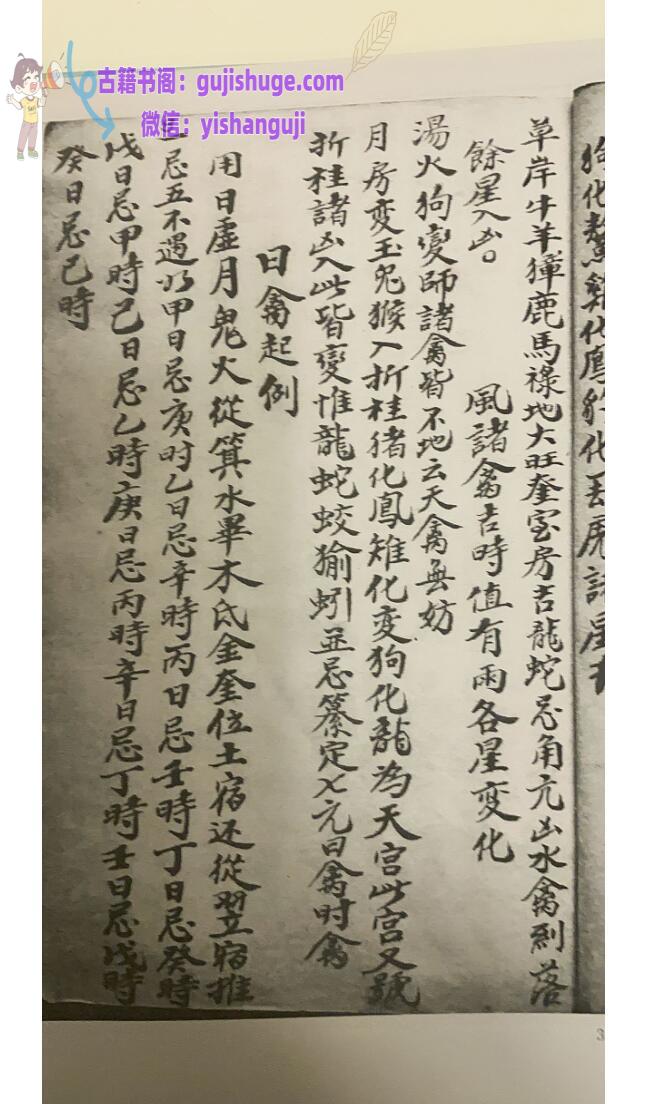 古籍书阁：gujishuge.com
微信：yishanguji
狗化鰲雞化鷹豹化
草岸牛羊獐鹿馬祿地大旺奎室房吉龍蛇忌角亢凶水禽到落
餘星入凶。　風諸禽吉時值有雨各星変化
湯火狗变師諸禽皆不地云天禽無妨
月房变玉兎猴入折桂猪化鳳雉化变狗化龍為天宫此宫又號
折桂諸凶入此皆变惟龍蛇蛟㺄蚓並忌纂定七元日禽时禽
日禽起例
用日虚月鬼火從箕水畢木氐金奎位土宿还從翌宿推
忌五不遇以甲日忌庚时乙日忌辛時丙日忌壬時丁日忌癸時
戊日忌甲時己日忌乙時庚日忌丙時辛日忌丁時壬日忌戊時
癸日忌己時
3